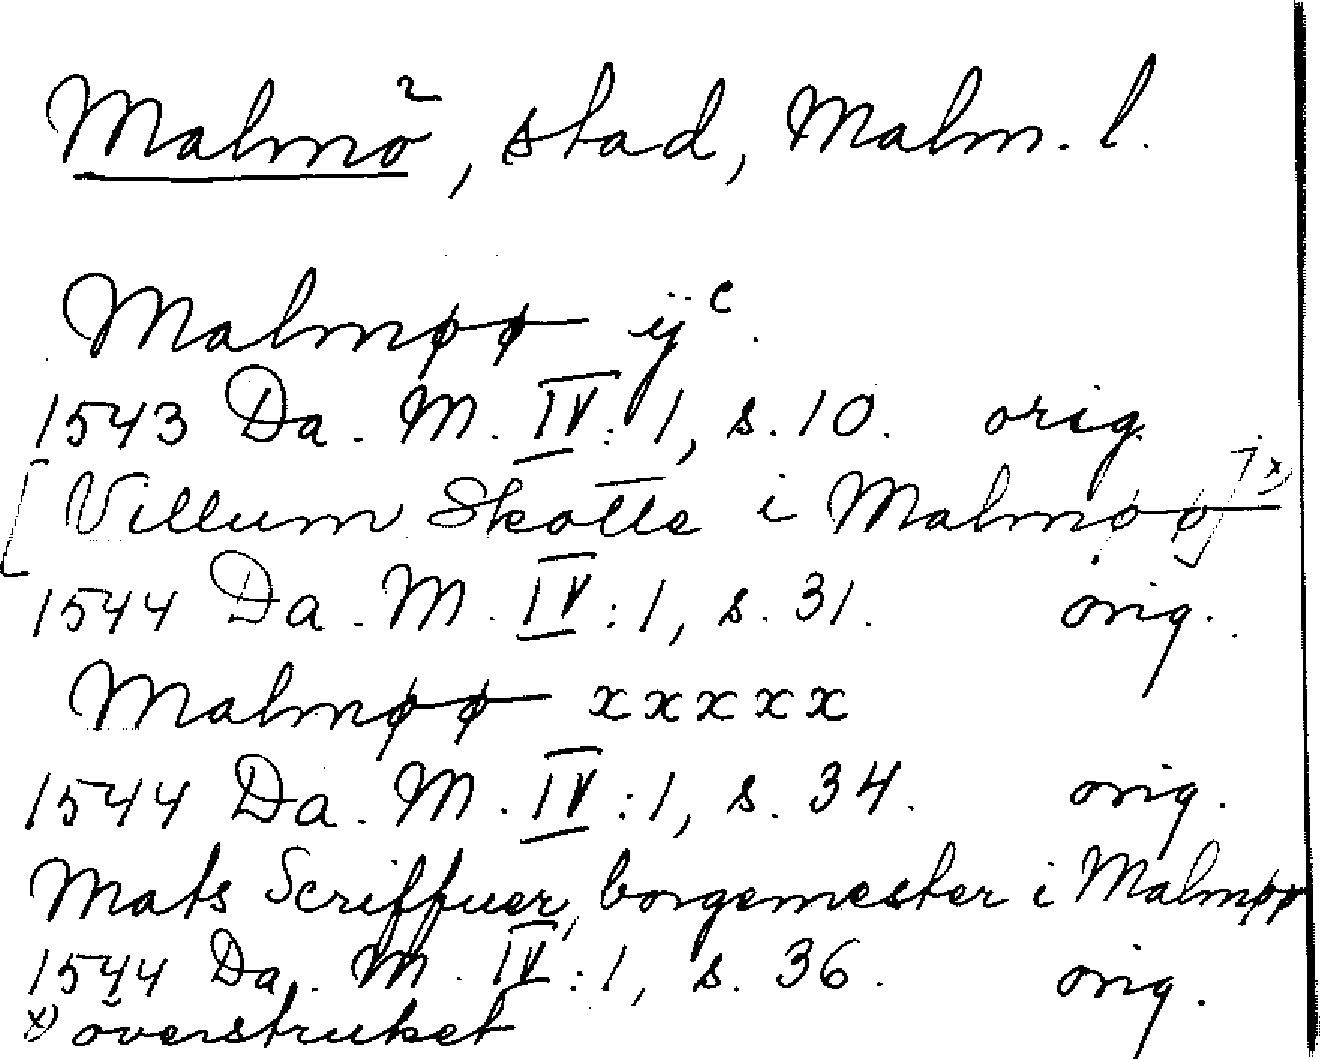 Malmö, stad, Malm. l.
Malmøø ijᶜ.
1543 Da. M. IV:1, s. 10. orig.
[Villum Skotte i Malmøø]ˣ⁾
1544 Da. M. IV:1, s. 31. orig.
Malmøø xxxxx
1544 Da. M. IV:1, s. 34. orig.
Mats Scriffuer, borgemester i Malmøø
1544 Da. M. IV:1, s. 36. orig.
x) överstruket